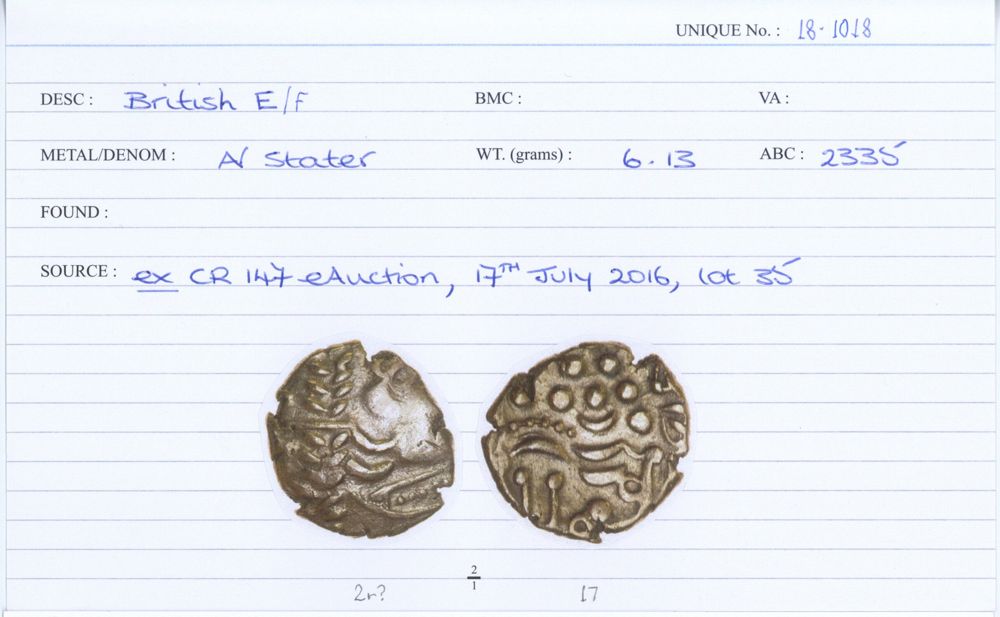 UNIQUE No. : 18-1018
DESC : British E/F BMC : VA :
METAL/DENOM : AV Stater WT. (grams) : 6.13 ABC : 2335
FOUND :
SOURCE : ex CR 147 eAuction, 17TH July 2016, lot 35
2
1
2r? 17